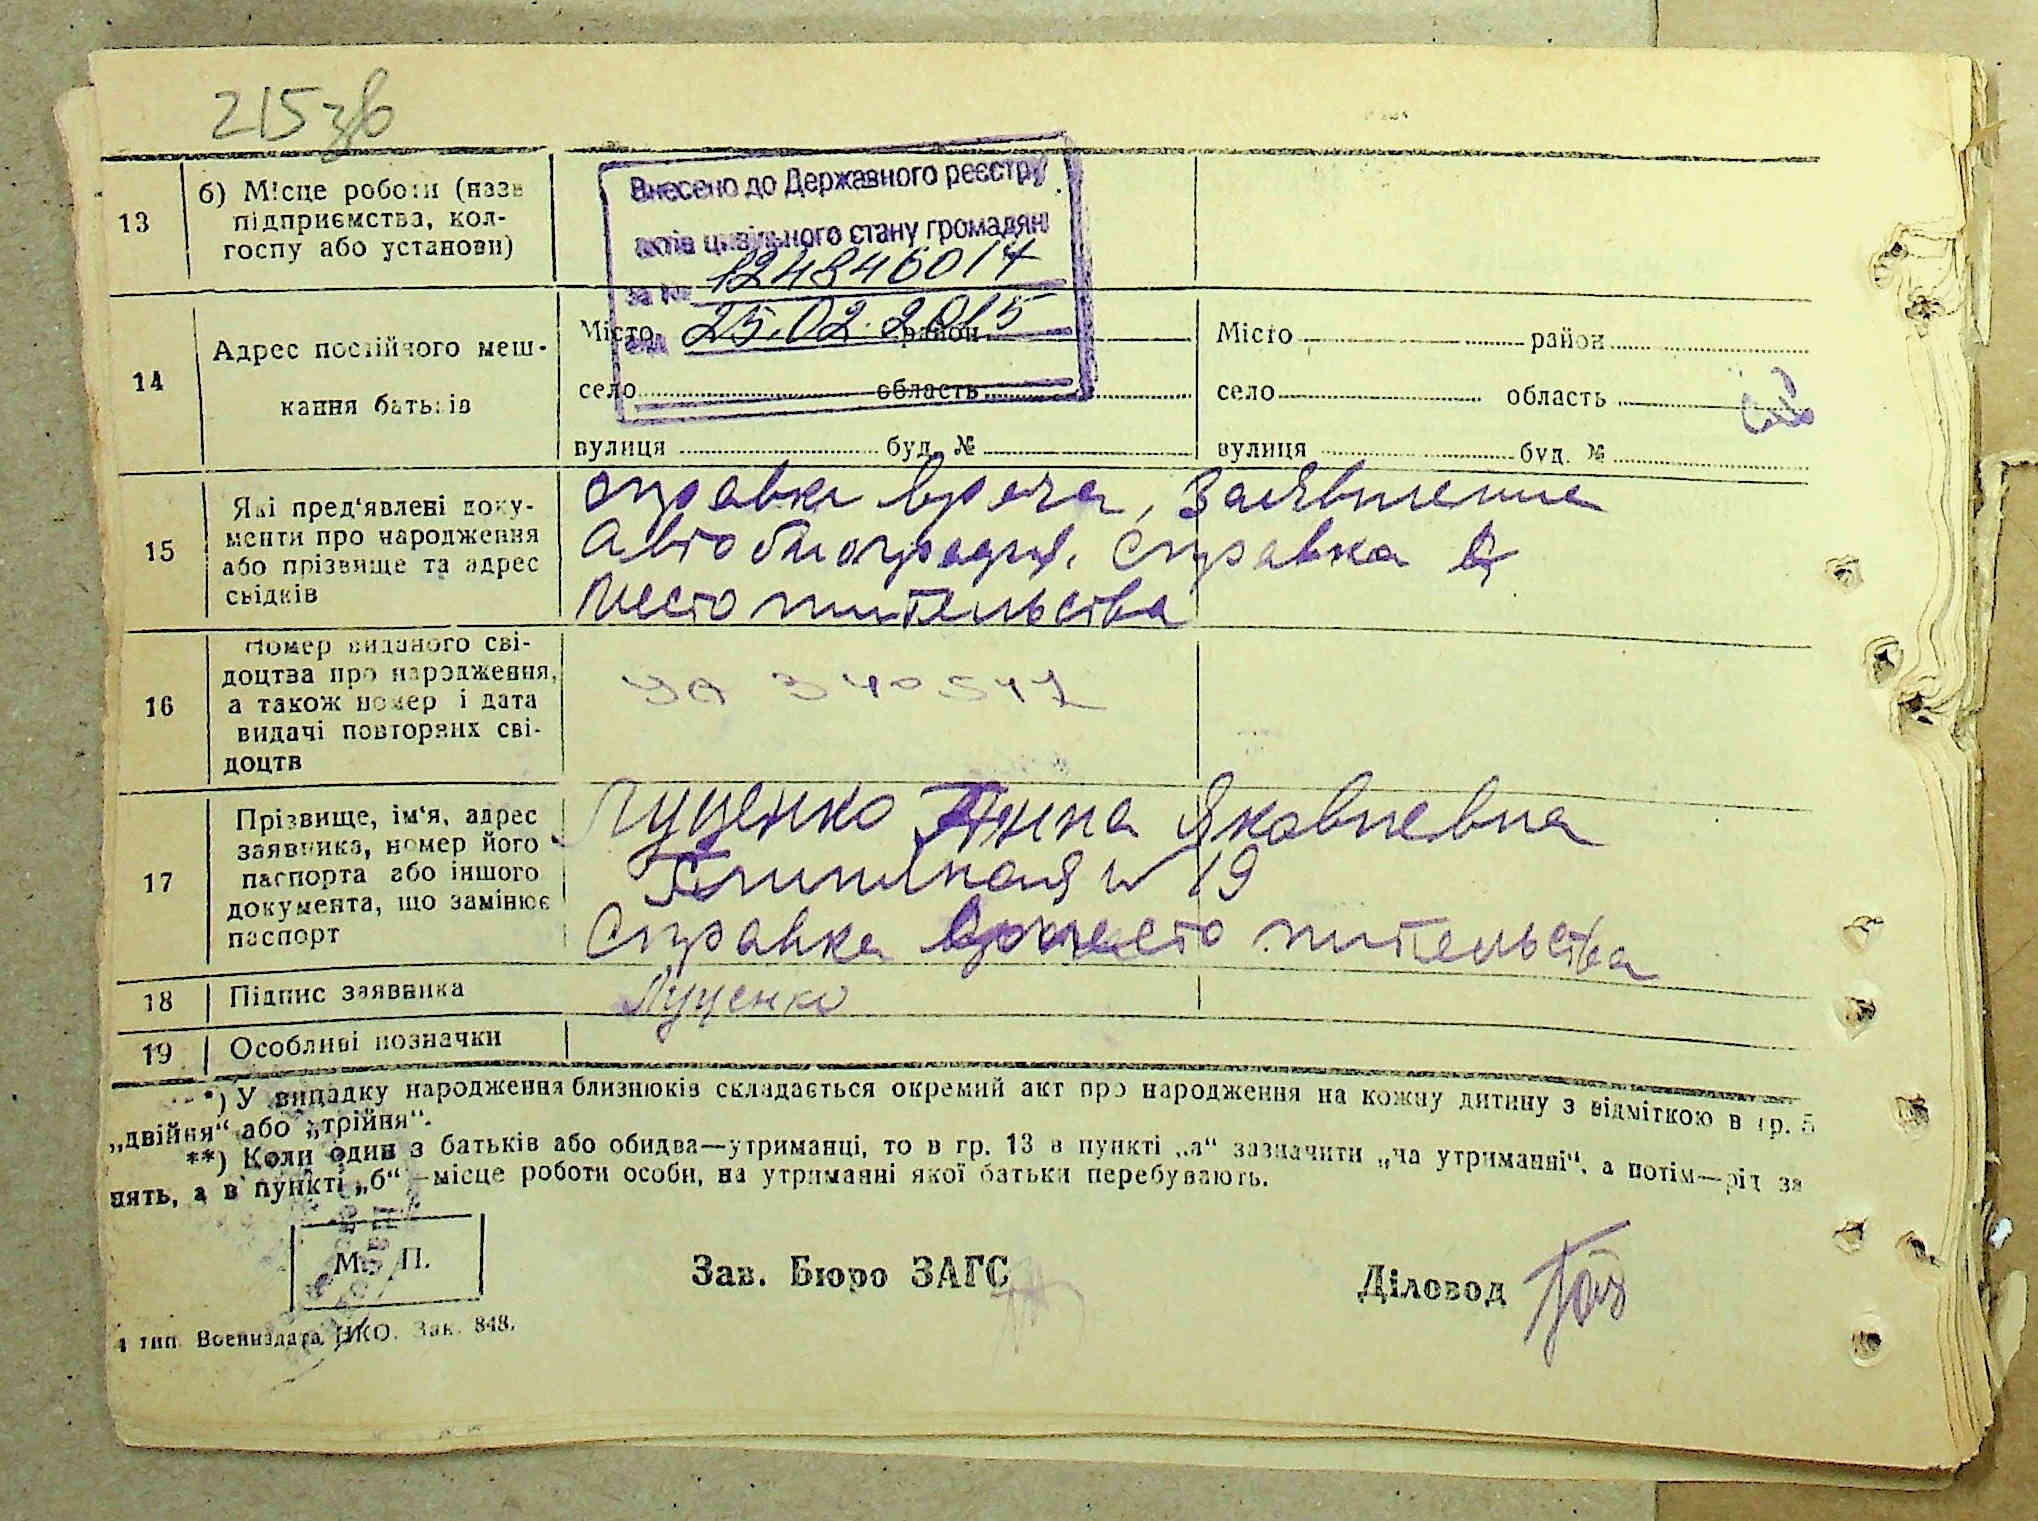 215 зв
13
б) Місце роботи (назв
підприємства, кол-
госпу або установи)
Внесено до Державного реєстру
актів цивільного стану громадян
за №
від 25.02.2015
14
Адрес постійного меш-
кання батьків
Місто район
село область
вулиця буд. №
Місто район
село область
вулиця буд. №
15
Які пред'явлені доку-
менти про народження
або прізвище та адрес
свідків
справка врача, Заявление
Автобиография. Справка с
место жительства
16
Номер виданого сві-
доцтва про народження,
а також номер і дата
видачі повторних сві-
доцтв
УА 340547
17
Прізвище, ім'я, адрес
заявника, номер його
паспорта або іншого
документа, що замінює
паспорт
Луценко Анна Яковлевна
19
Справка место жительства
18
Підпис заявника
Луценко
19
Особливі позначки
*) У випадку народження близнюків складається окремий акт про народження на кожну дитину з відміткою в гр. 5
„двійня“ або „трійня“.
**) Коли один з батьків або обидва—утриманці, то в гр. 13 в пункті „а“ зазначити „на утриманні“, а потім—рід за
нять, а в пункті „б“—місце роботи особи, на утриманні якої батьки перебувають.
М. П.
Зав. Бюро ЗАГС
Діловод
4 тип. Воениздата НКО. Зак. 848.